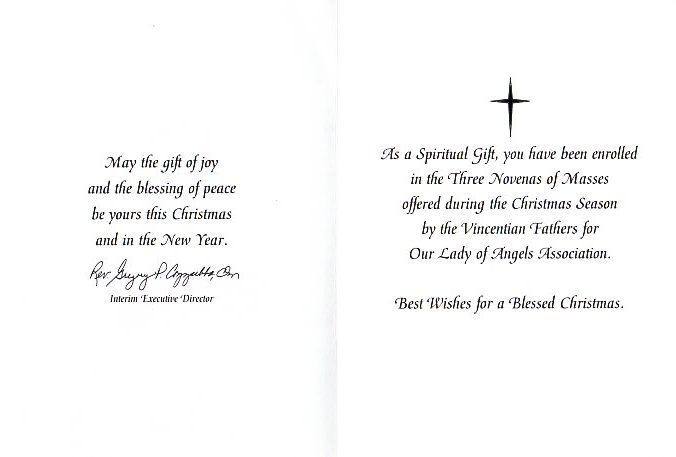 May the gift of joy
and the blessing of peace
be yours this Christmas
and in the New Year.
Rev. Gregory P.
Interim Executive Director
As a Spiritual Gift, you have been enrolled
in the Three Novenas of Masses
offered during the Christmas Season
by the Vincentian Fathers for
Our Lady of Angels Association.
Best Wishes for a Blessed Christmas.